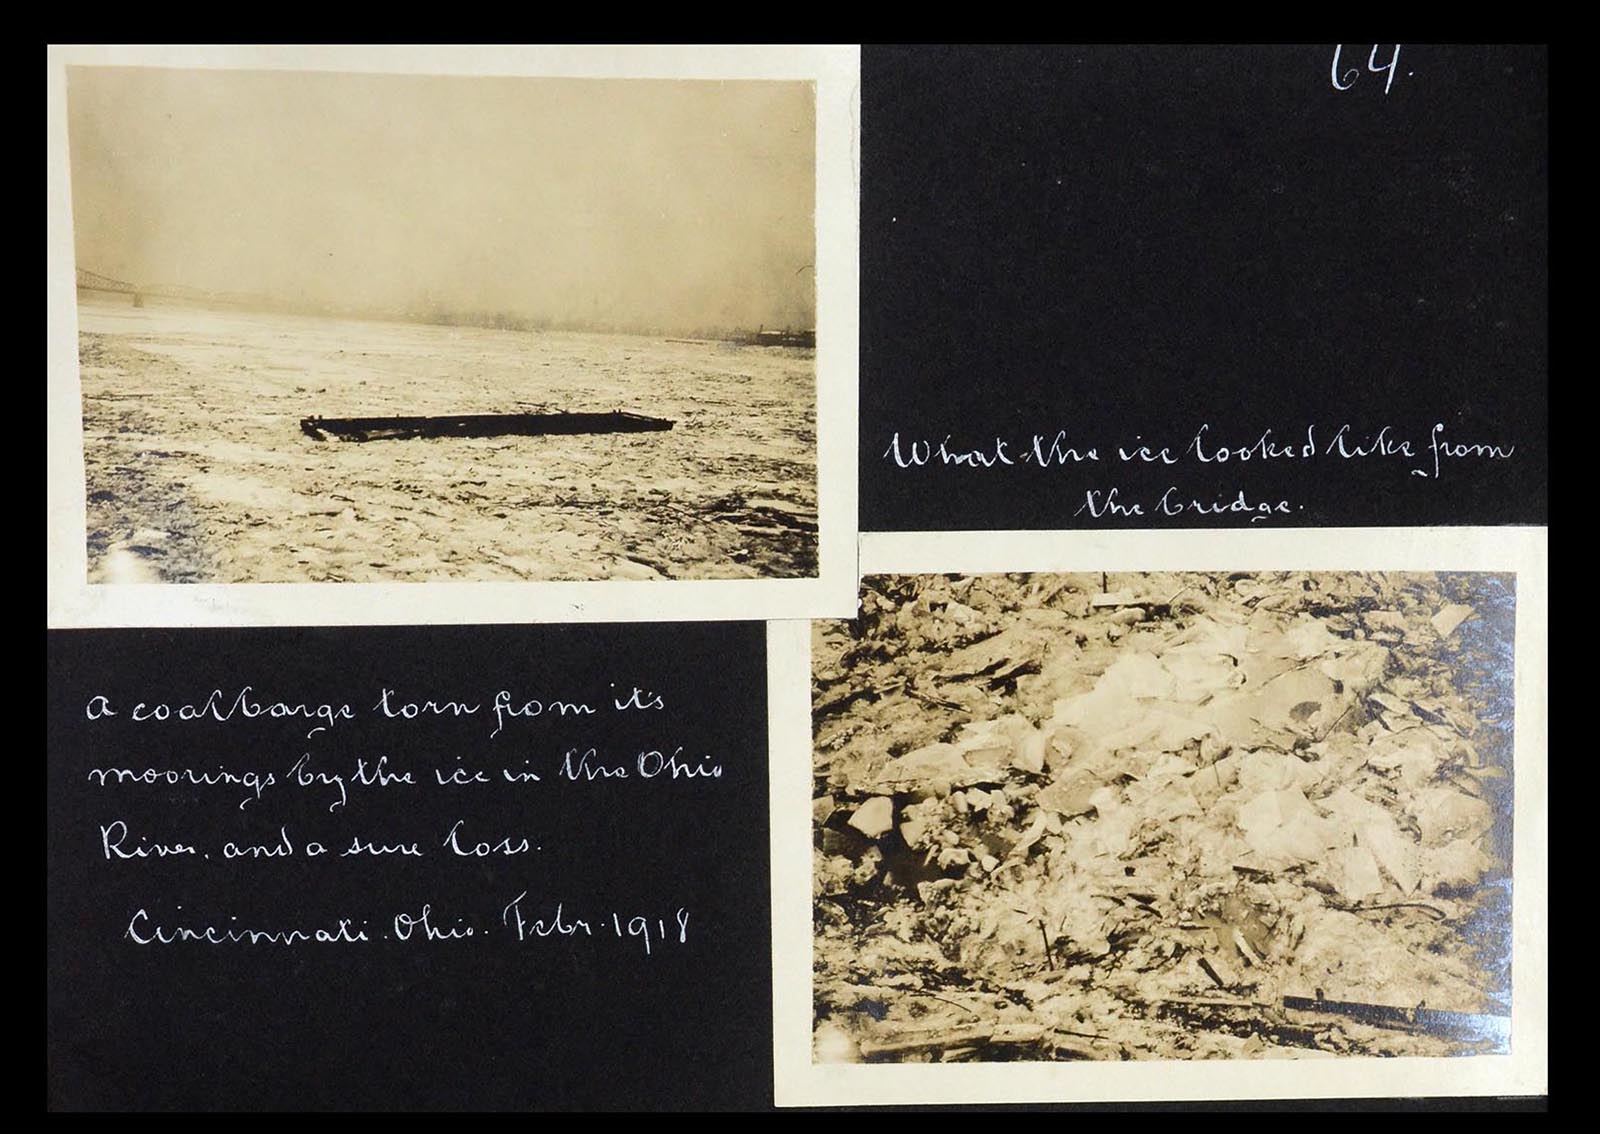 64.
What the ice looked like from
the bridge.
A coal barge torn from it's
moorings by the ice in the Ohio
River, and a sure loss.
Cincinnati. Ohio. Febr. 1918